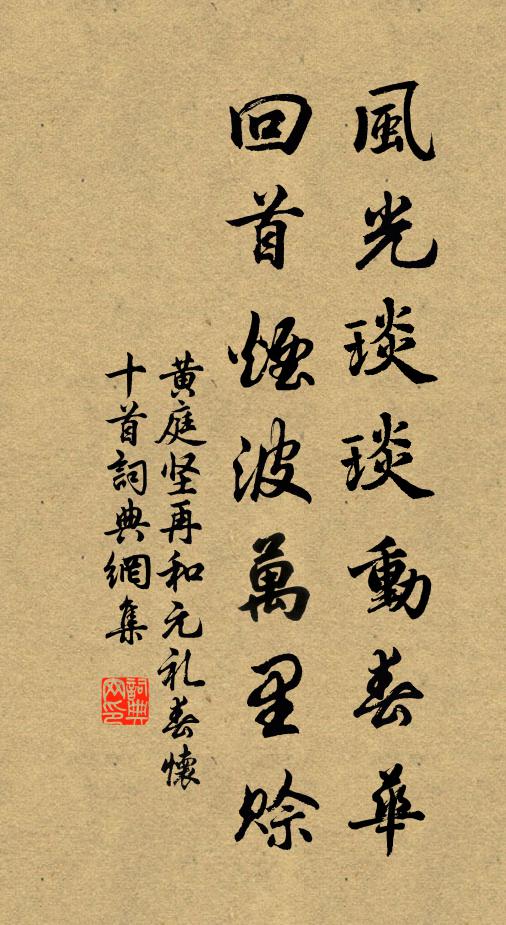 風光琰琰動春華
回首煙波萬里賒
黄庭坚再和元礼春懷
十首詞典網集
詞典網印